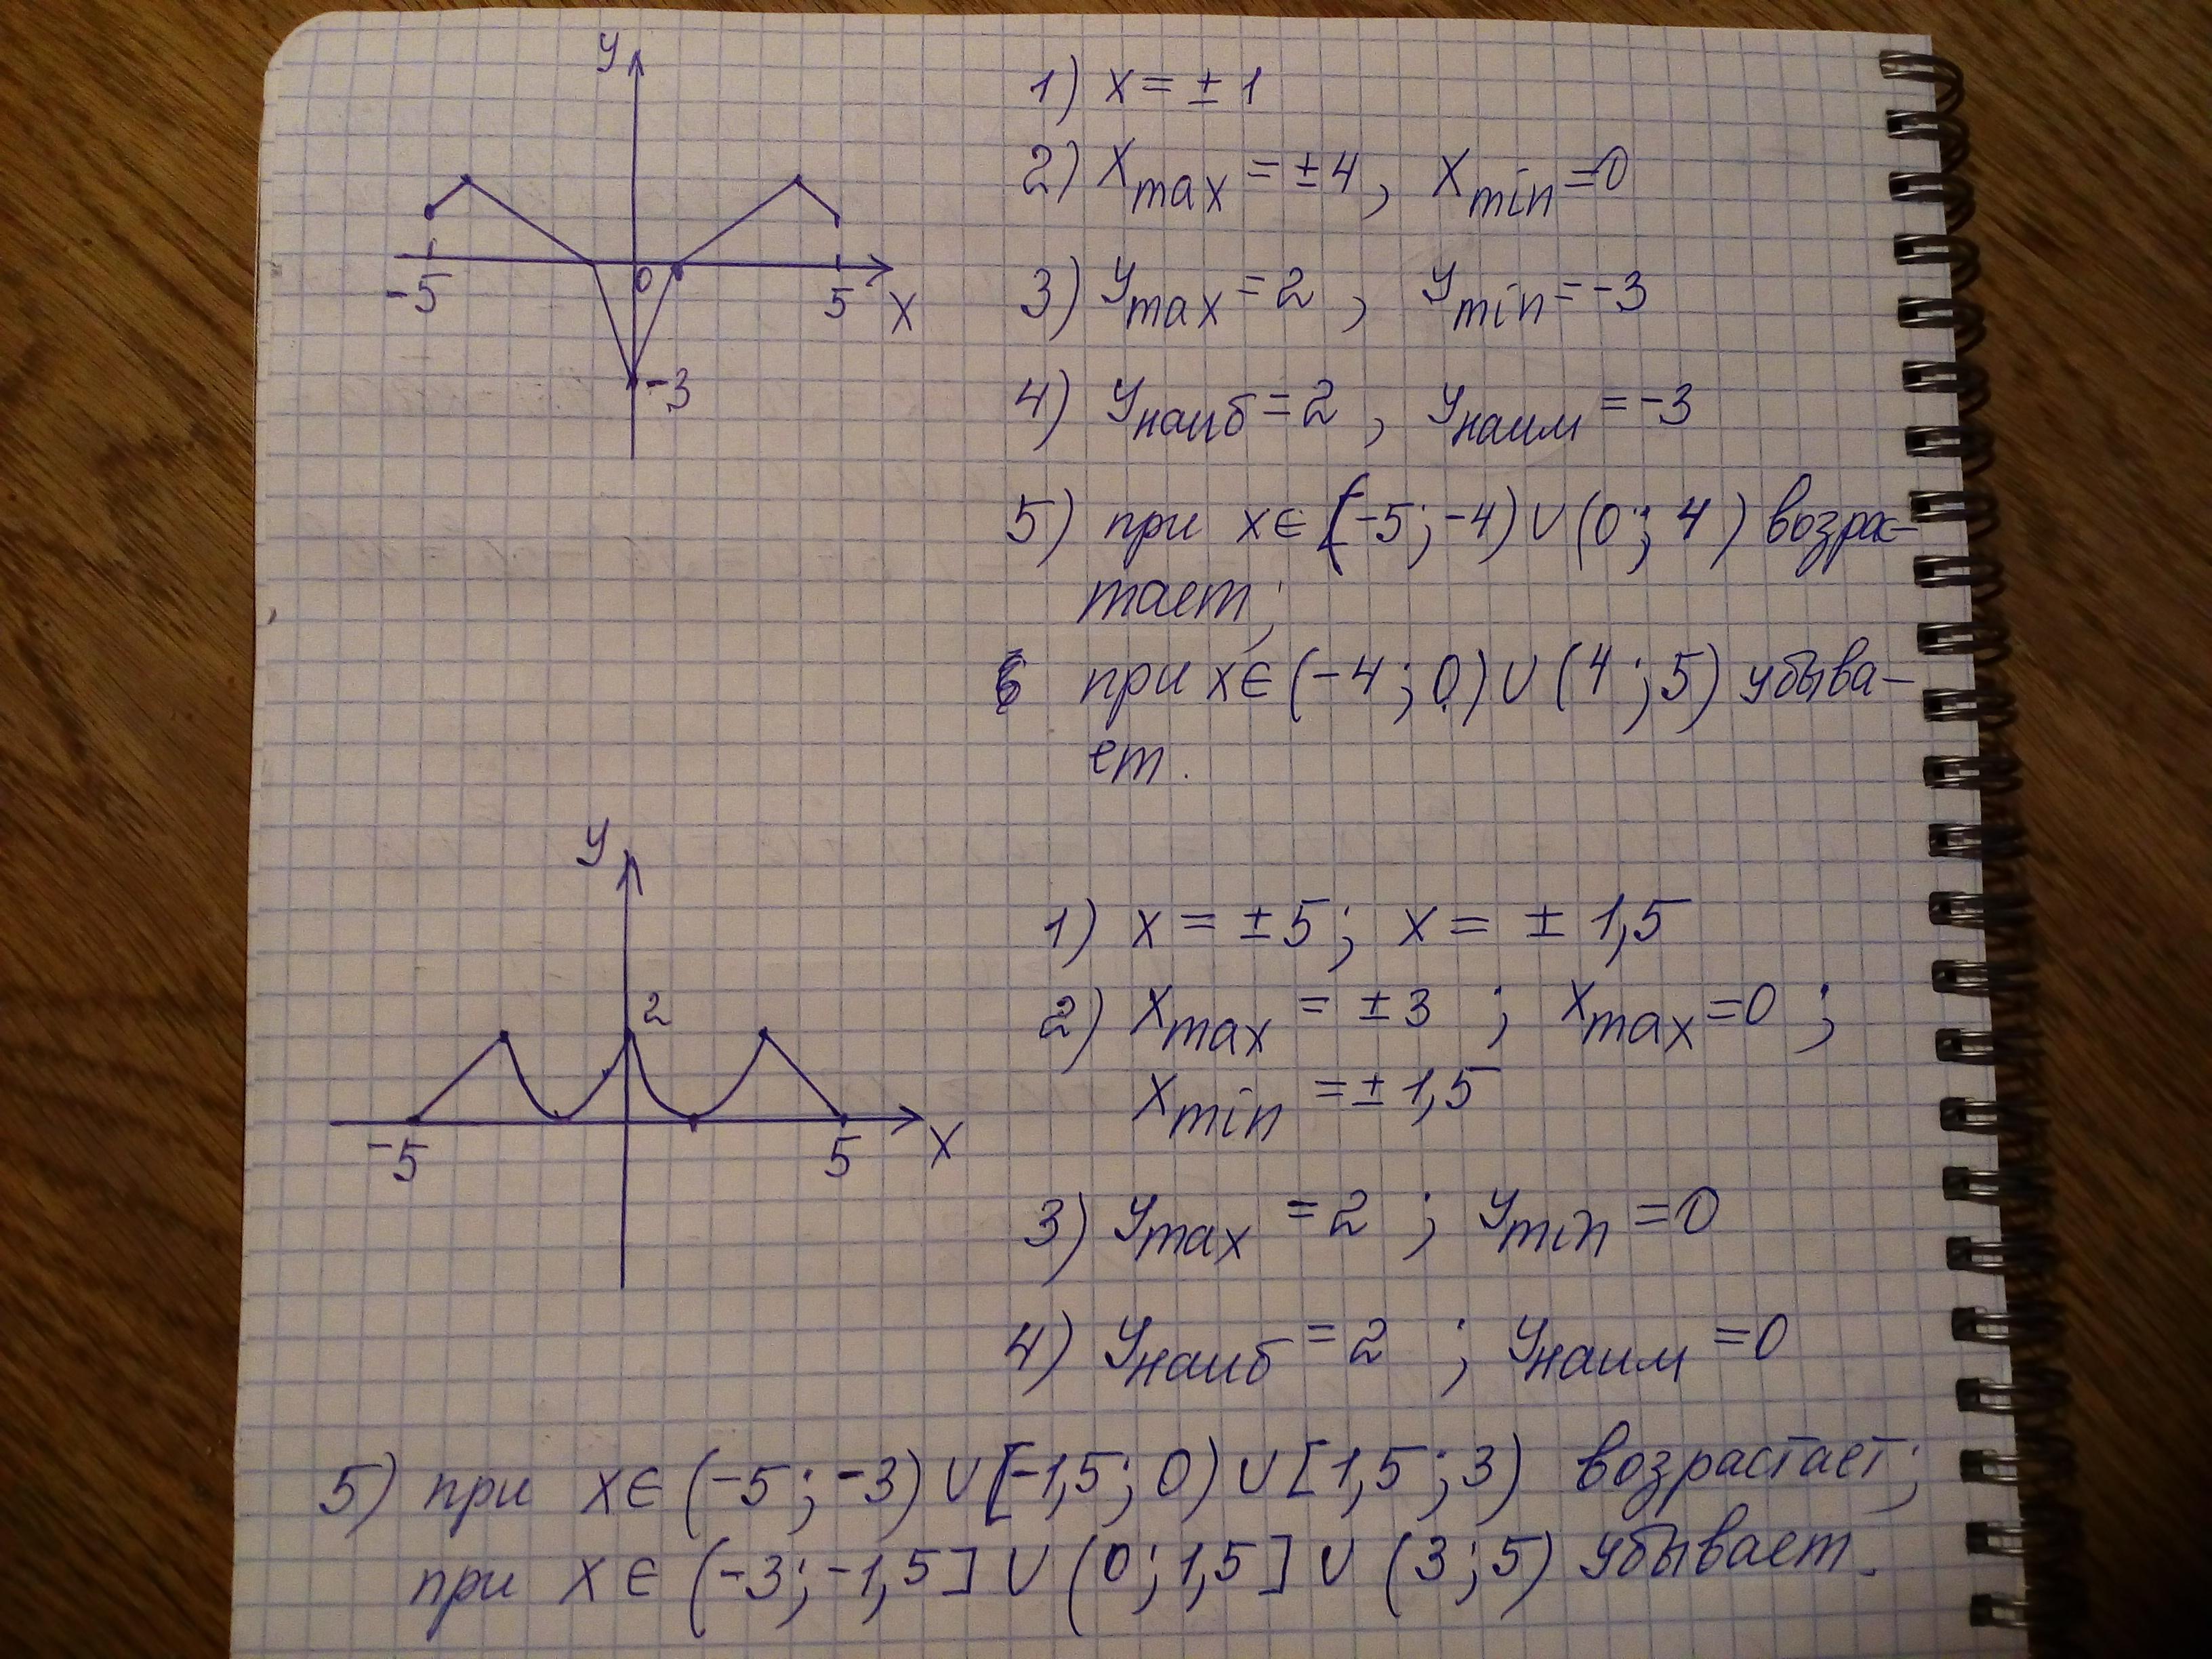 y
-5
0
5
x
-3
1) x = ± 1
2) x max = ±4, x min = 0
3) y max = 2, y min = -3
4) y наиб = 2, y наим = -3
5) при x ∈ [-5; -4) ∪ (0; 4) возрас-
тает;
при x ∈ (-4; 0) ∪ (4; 5) убыва-
ет.
y
2
-5
5
x
1) x = ± 5; x = ± 1,5
2) x max = ± 3; x max = 0;
x min = ± 1,5
3) y max = 2; y min = 0
4) y наиб = 2; y наим = 0
5) при x ∈ (-5; -3) ∪ [-1,5; 0) ∪ [1,5; 3) возрастает;
при x ∈ (-3; -1,5] ∪ (0; 1,5] ∪ (3; 5) убывает.